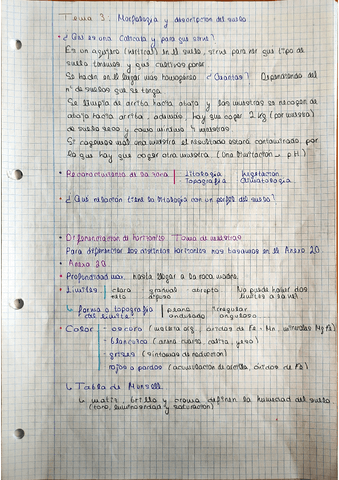 Tema 3: Morfología y descripción del suelo
• ¿Qué es una Calicata y para qué sirve?
Es un agujero (vertical) en el suelo, sirve para ver que tipo de
suelo tenemos y que cultivos poner
Se hacen en el lugar mas homogéneo ¿Cuantas? Dependiendo del
nº de suelos que se tenga.
Se limpia de arriba hacia abajo y las muestras se recogen de
abajo hacia arriba, además hay que coger 2 kg (por muestra)
de suelo seco y como mínimo 4 muestras.
Si cogemos mal una muestra el resultado estará contaminado, por
lo que hay que coger otra muestra (Una pH).
• Reconocimiento de la zona | Litología Vegetación
Topografía Climatología
• ¿Qué relación tiene la litología con un perfil del suelo?
• Diferenciación de horizontes Toma de muestras
Para diferenciar los distintos horizontes nos basamos en el Anexo 20
• Anexo 20
• Profundidad max. hasta llegar a la roca madre.
• Límites | claro - gradual - abrupto No puede haber dos
neto difuso límites a la vez
↳ forma o topografía | plana irregular
del límite ondulado
• Color - oscuro (materia org, óxidos de Fe - Mn, minerales Mg Fe)
- blancura (arena cuarzo, caliza, yeso)
- grises (síntomas de reducción)
- rojos a pardos (acumulación de arcilla, óxidos de Fe)
↳ Tabla de Munsell
↳ matiz, brillo y croma definen la humedad del suelo
(tono, luminosidad y saturación)